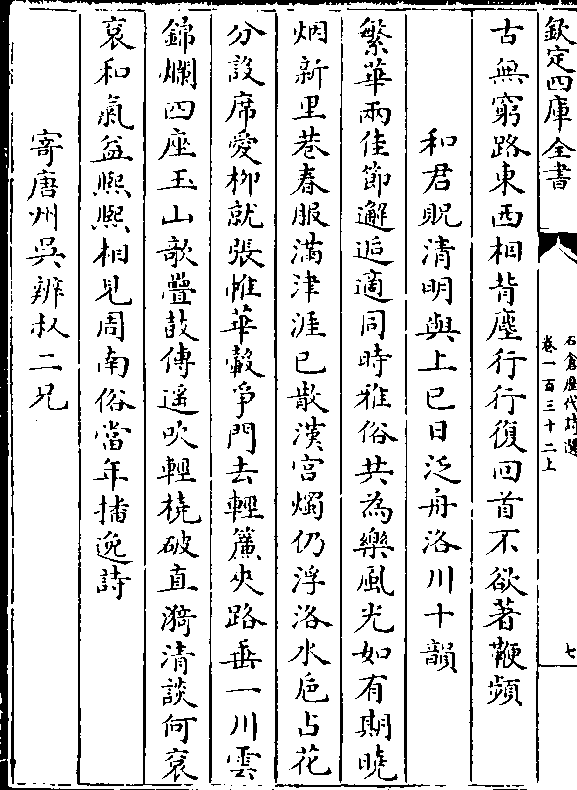 欽定四庫全書
石倉歷代詩選
卷一百三十二上
七
古無窮路東西相背塵行行復回首不欲著鞭頻
和君貺清明與上巳日泛舟洛川十韻
繁華兩佳節邂逅適同時雅俗共為樂風光如有期曉
烟新里巷春服滿津涯已散漢宮燭仍浮洛水巵占花
分設席愛柳就張帷華轂爭門去輕簾夾路垂一川雲
錦爛四座玉山欹疊鼓傳遙吹輕橈破直漪清談何衮
衮和氣益熙熙相見周南俗當年播逸詩
寄唐州吳辨叔二兄